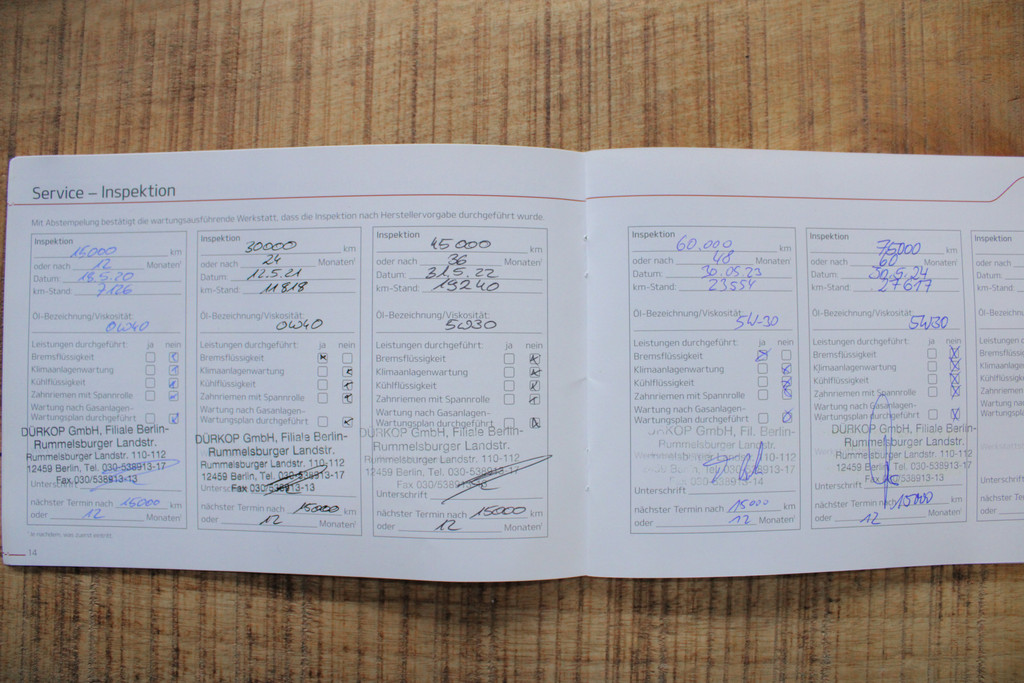 Service – Inspektion
Mit Abstempelung bestätigt die wartungsausführende Werkstatt, dass die Inspektion nach Herstellervorgabe durchgeführt wurde.
Inspektion
15000 km
oder nach 12 Monaten¹
Datum: 18.5.20
km-Stand: 7126
Öl-Bezeichnung/Viskosität:
0W40
Leistungen durchgeführt: ja nein
Bremsflüssigkeit
Klimaanlagenwartung
Kühlflüssigkeit
Zahnriemen mit Spannrolle
Wartung nach Gasanlagen-
Wartungsplan durchgeführt
DÜRKOP GmbH, Filiale Berlin-
Rummelsburger Landstr.
Rummelsburger Landstr. 110-112
12459 Berlin, Tel. 030-538913-17
Fax 030/538913-13
Unterschrift
nächster Termin nach 15000 km
oder 12 Monaten¹
¹ je nachdem, was zuerst eintritt
14
Inspektion
30000 km
oder nach 24 Monaten¹
Datum: 12.5.21
km-Stand: 11818
Öl-Bezeichnung/Viskosität:
0W40
Leistungen durchgeführt: ja nein
Bremsflüssigkeit
Klimaanlagenwartung
Kühlflüssigkeit
Zahnriemen mit Spannrolle
Wartung nach Gasanlagen-
Wartungsplan durchgeführt
DÜRKOP GmbH, Filiale Berlin-
Rummelsburger Landstr.
Rummelsburger Landstr. 110-112
12459 Berlin, Tel. 030-538913-17
Fax 030/538913-13
nächster Termin nach 15000 km
oder 12 Monaten¹
Inspektion
45000 km
oder nach 36 Monaten¹
Datum: 31.5.22
km-Stand: 19240
Öl-Bezeichnung/Viskosität:
5W30
Leistungen durchgeführt: ja nein
Bremsflüssigkeit
Klimaanlagenwartung
Kühlflüssigkeit
Zahnriemen mit Spannrolle
Wartung nach Gasanlagen-
Wartungsplan durchgeführt
DÜRKOP GmbH, Filiale Berlin-
Rummelsburger Landstr.
Rummelsburger Landstr. 110-112
12459 Berlin, Tel. 030-538913-17
Unterschrift
nächster Termin nach 15000 km
oder 12 Monaten¹
Inspektion
60.000 km
oder nach 48 Monaten¹
Datum: 30.05.23
km-Stand: 23554
Öl-Bezeichnung/Viskosität:
5W-30
Leistungen durchgeführt: ja nein
Bremsflüssigkeit
Klimaanlagenwartung
Kühlflüssigkeit
Zahnriemen mit Spannrolle
Wartung nach Gasanlagen-
Wartungsplan durchgeführt
DÜRKOP GmbH, Fil. Berlin-
Rummelsburger Landstr.
Unterschrift
nächster Termin nach 15000 km
oder 12 Monaten¹
Inspektion
75000 km
oder nach 60 Monaten¹
Datum: 30.5.24
km-Stand: 27617
Öl-Bezeichnung/Viskosität:
5W30
Leistungen durchgeführt: ja nein
Bremsflüssigkeit
Klimaanlagenwartung
Kühlflüssigkeit
Zahnriemen mit Spannrolle
Wartung nach Gasanlagen-
Wartungsplan durchgeführt
DÜRKOP GmbH, Filiale Berlin-
Rummelsburger Landstr.
Rummelsburger Landstr. 110-112
12459 Berlin, Tel. 030-538913-17
Unterschrift
nächster Termin nach 15000 km
oder 12 Monaten¹
Inspektion
oder nach
Datum:
km-Stand: